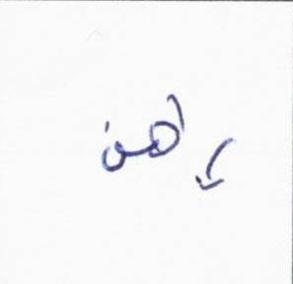 يراهن